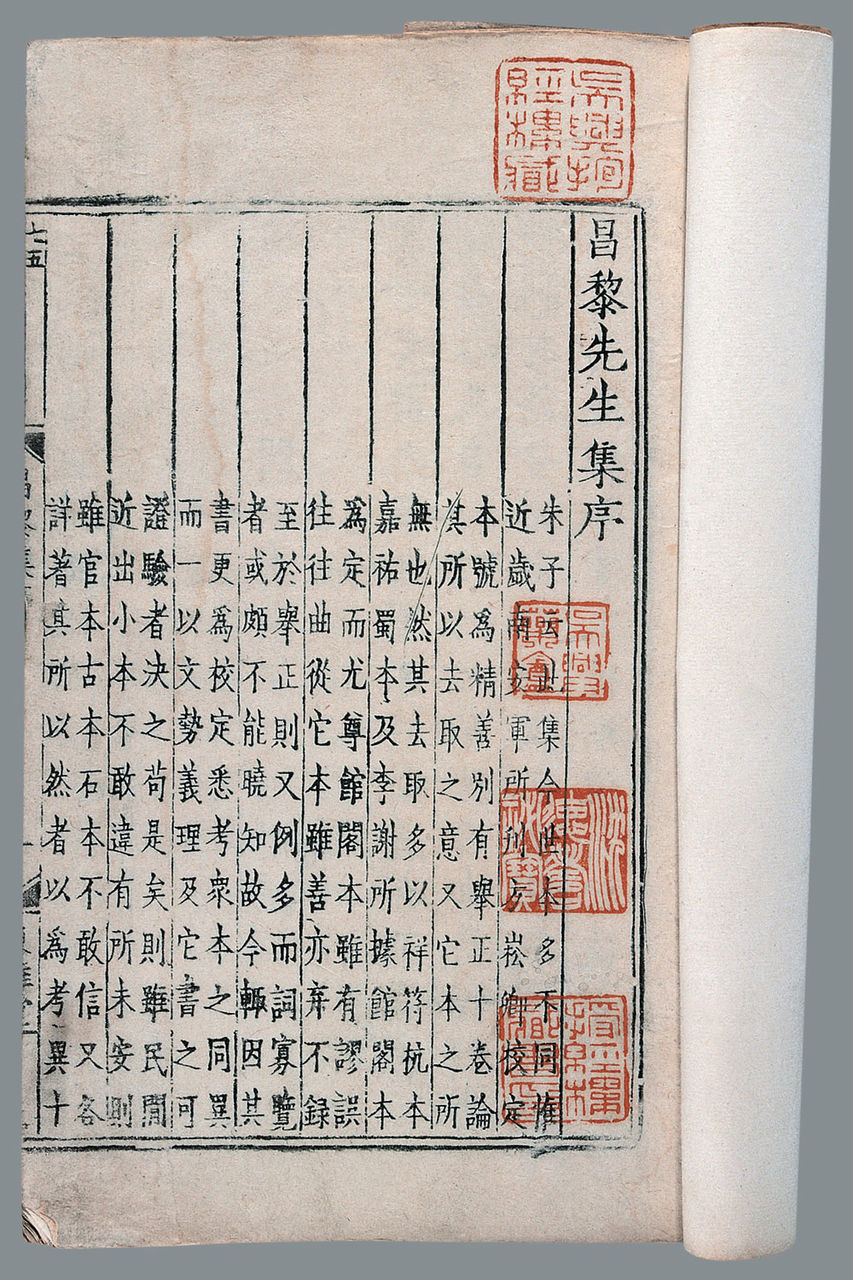 吳興抱
經樓藏
昌黎先生集序
朱子云此集今世本多不同惟
近歲南安軍所刊方崧卿校定
本號為精善別有舉正十卷論
其所以去取之意又它本之所
無也然其去取多以祥符杭本
嘉祐蜀本及李謝所據館閣本
為定而尤尊館閣本雖有謬誤
往往曲從它本雖善亦弃不録
至於舉正則又例多而詞寡覽
者或頗不能曉知故今輒因其
書更為校定悉考衆本之同異
而一以文勢義理及它書之可
證驗者決之苟是矣則雖民間
近出小本不敢違有所未安則
雖官本古本石本不敢信又各
詳著其所以然者以為考異十
吳興
藥龕
沈
德壽
秘寶
七五